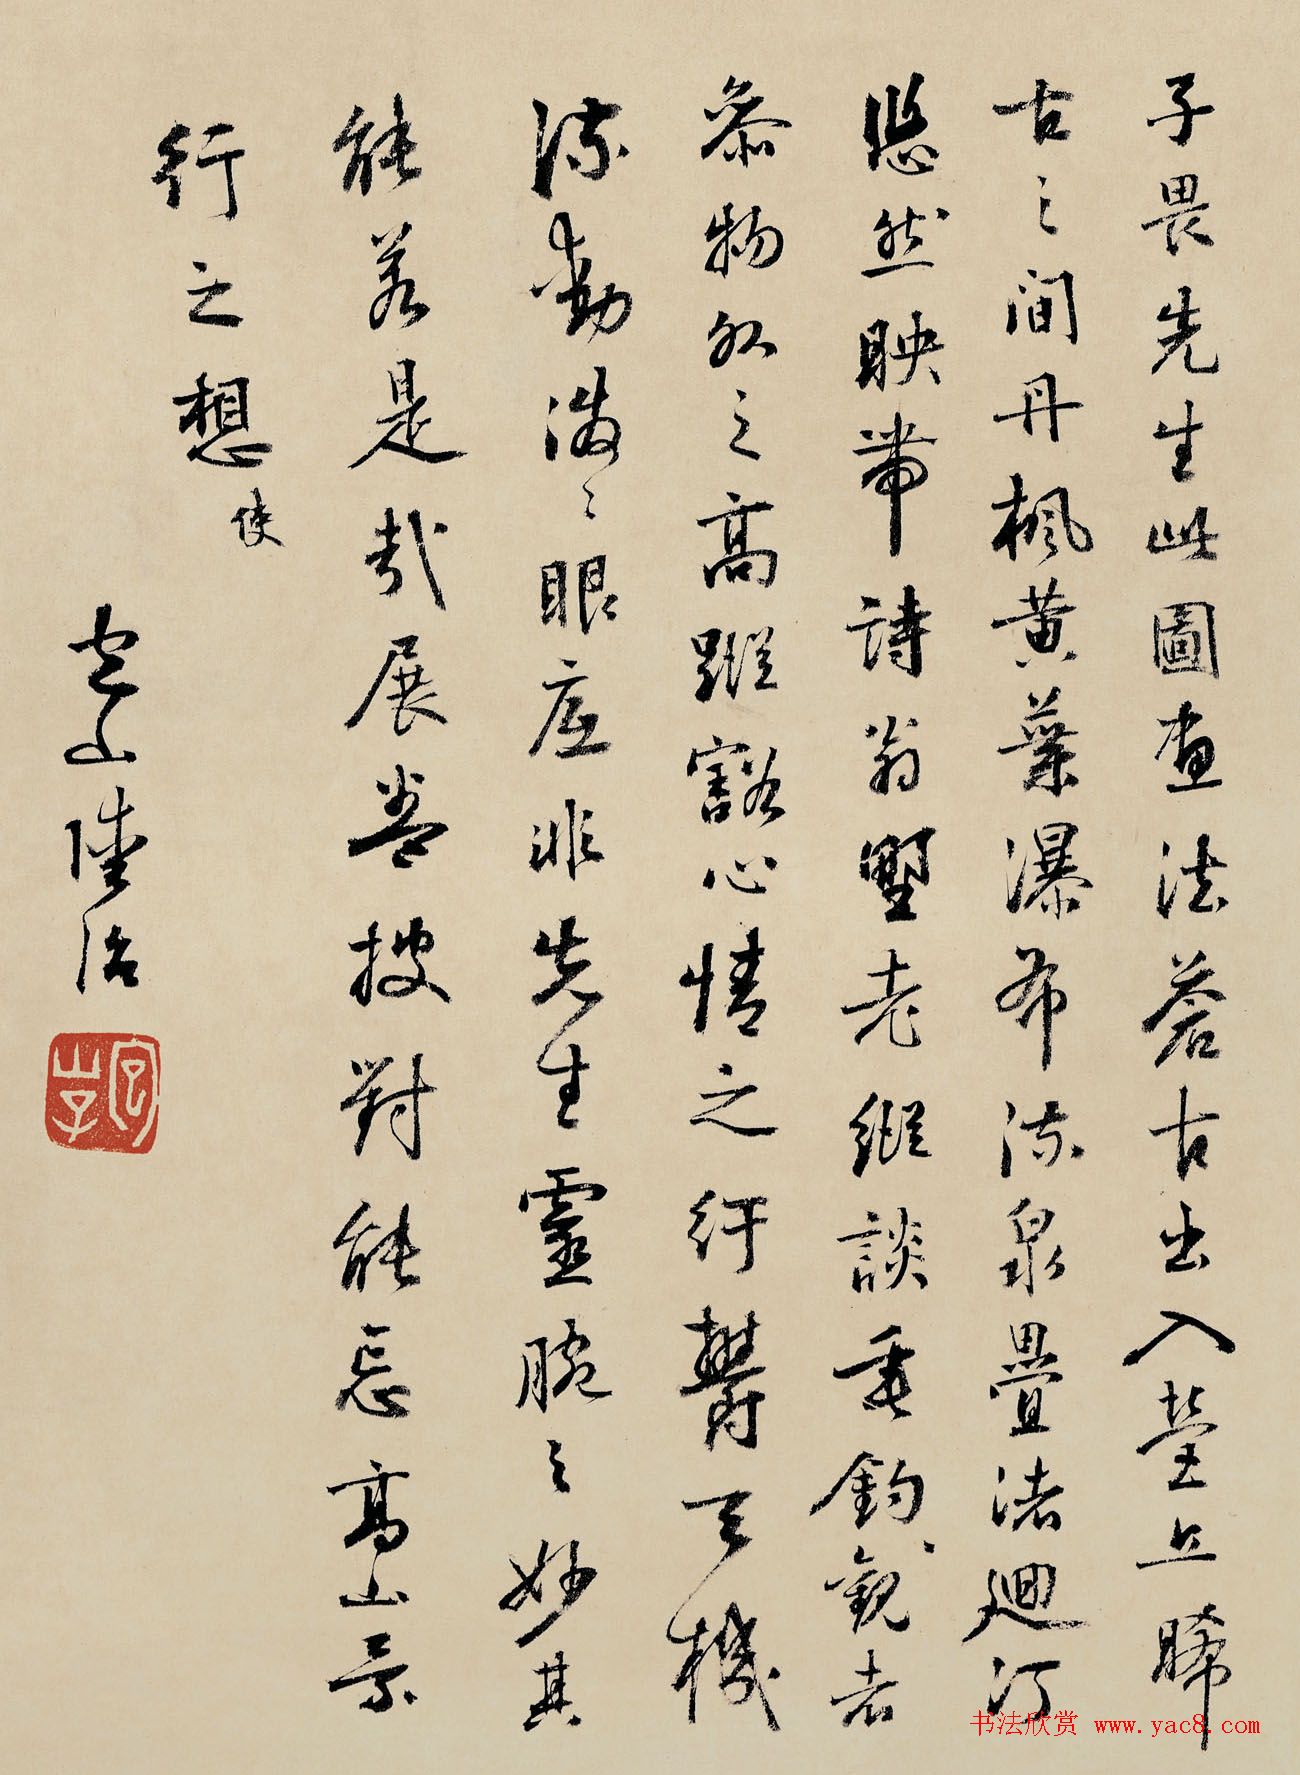 子畏先生此圖畫法蒼古出入營丘晞
古之間丹楓黄葉瀑布流泉疊渚迴汀
悠然映帶詩翁墅老縱談垂釣觀者
参物外之高蹤豁心情之紆鬱天機
流動潑〻眼底非先生靈腕之妙其
能若是哉展卷披對能忘高山景
行之想 使
包山陸治
書法欣赏 www.yac8.com